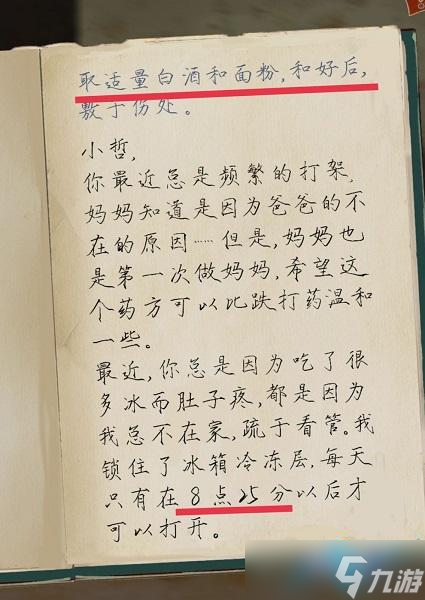 取适量白酒和面粉,和好后,
敷于伤处。
小哲,
你最近总是频繁的打架,
妈妈知道是因为爸爸的不
在的原因……但是,妈妈也
是第一次做妈妈,希望这
个药方可以比跌打药温和
一些。
最近,你总是因为吃了很
多冰而肚子疼,都是因为
我总不在家,疏于看管。我
锁住了冰箱冷冻层,每天
只有在8点25分以后才
可以打开。
九游